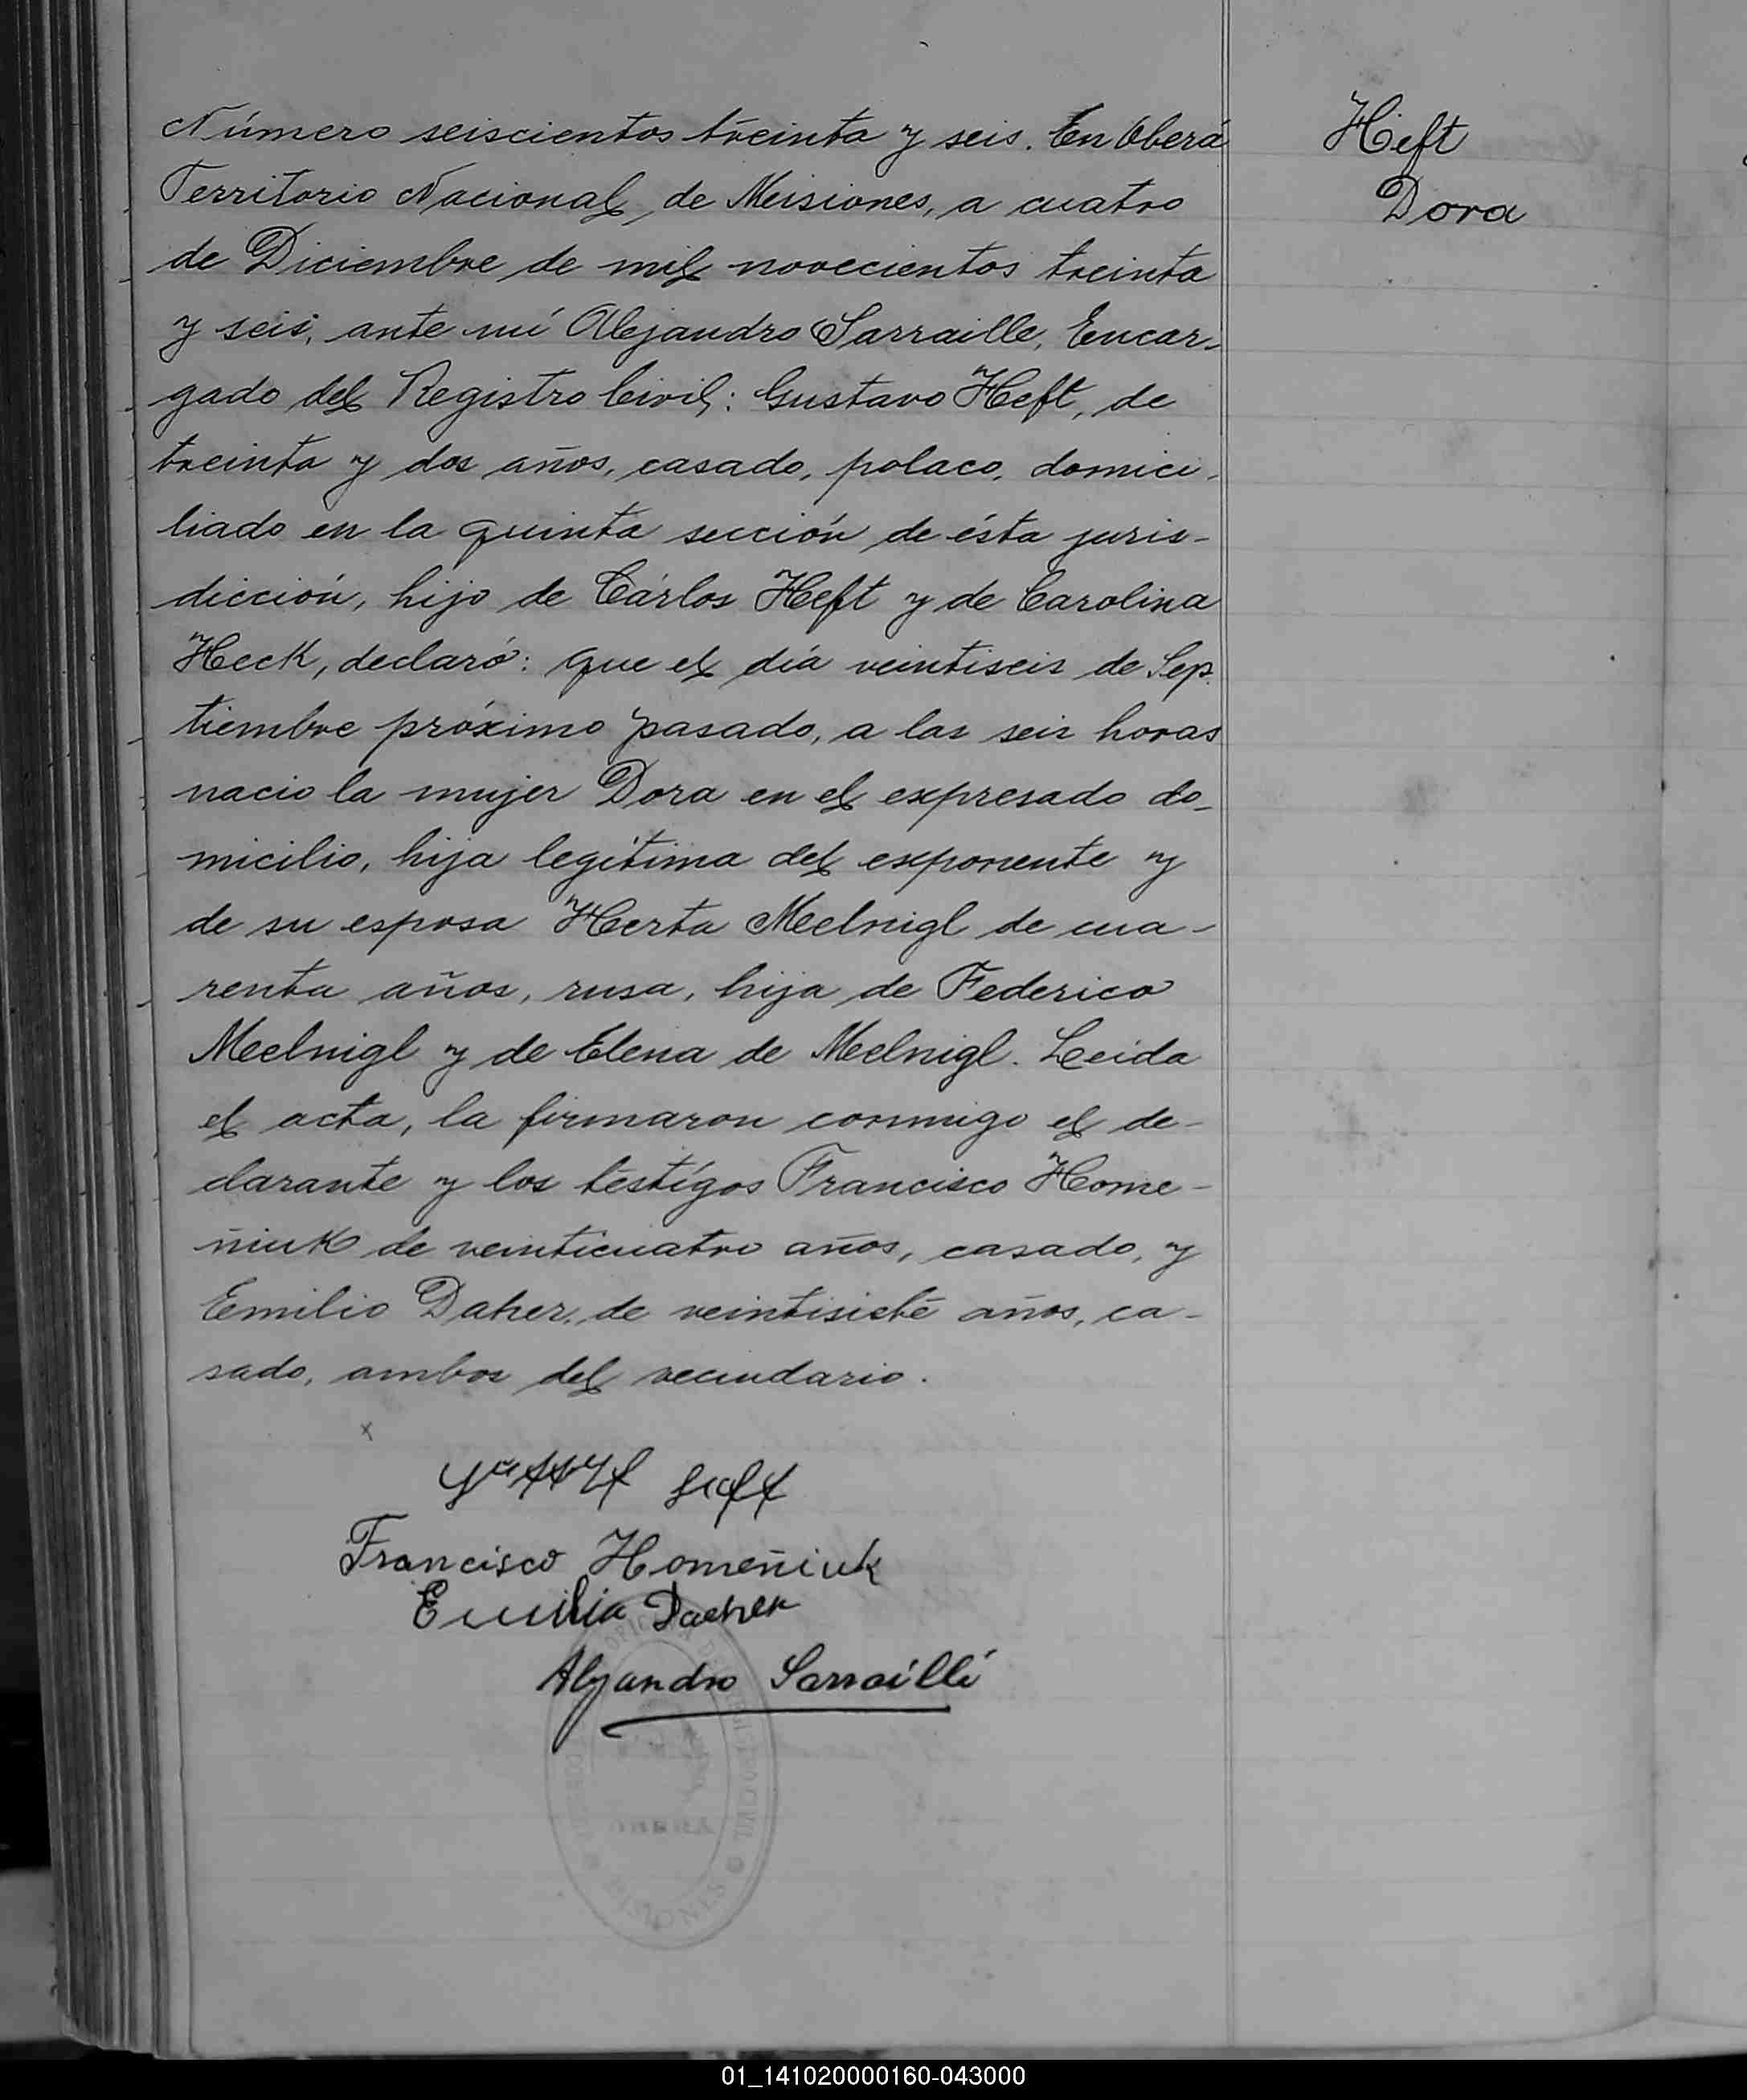 Número seiscientos treinta y seis. En Oberá
Territorio Nacional de Misiones, a cuatro
de Diciembre de mil novecientos treinta
y seis, ante mí Alejandro Sarraille, Encar-
gado del Registro Civil; Gustavo Heft, de
treinta y dos años, casado, polaco, domici-
liado en la quinta sección de ésta juris-
dicción, hijo de Cárlos Heft y de Carolina
Heck, declaró: que el día veintiseis de Sep-
tiembre próximo pasado, a las seis horas
nacio la mujer Dora en el expresado do-
micilio, hija legítima del exponente y
de su esposa Herta Meelnigl de cua-
renta años, rusa, hija de Federico
Meelnigl y de Elena de Meelnigl. Leida
el acta, la firmaron conmigo el de-
clarante y los testígos Francisco Home-
ñiuk de veinticuatro años, casado, y
Emilio Daher, de veintisiete años, ca-
sado, ambos del vecindario.
Heft
Dora
x
Francisco Homeñiuk
Emilio Daher
Alejandro Sarraillé
MISIONES
01_141020000160-043000